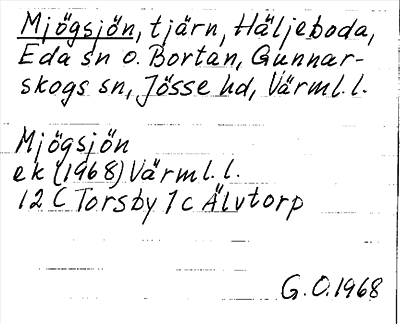 Mjögsjön, tjärn, Häljeboda,
Eda sn o. Bortan, Gunnar-
skogs sn, Jösse hd, Värml.l.
Mjögsjön
ek (1968) Värml.l.
12 C Torsby 7c Älvtorp
G.O.1968